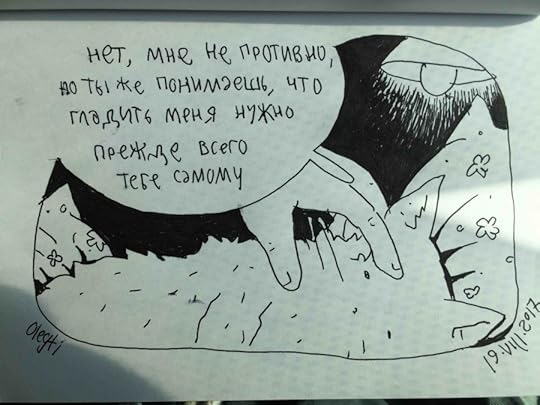 нет, мне не противно,
но ты же понимаешь, что
гладить меня нужно
прежде всего
тебе самому
OlegTi